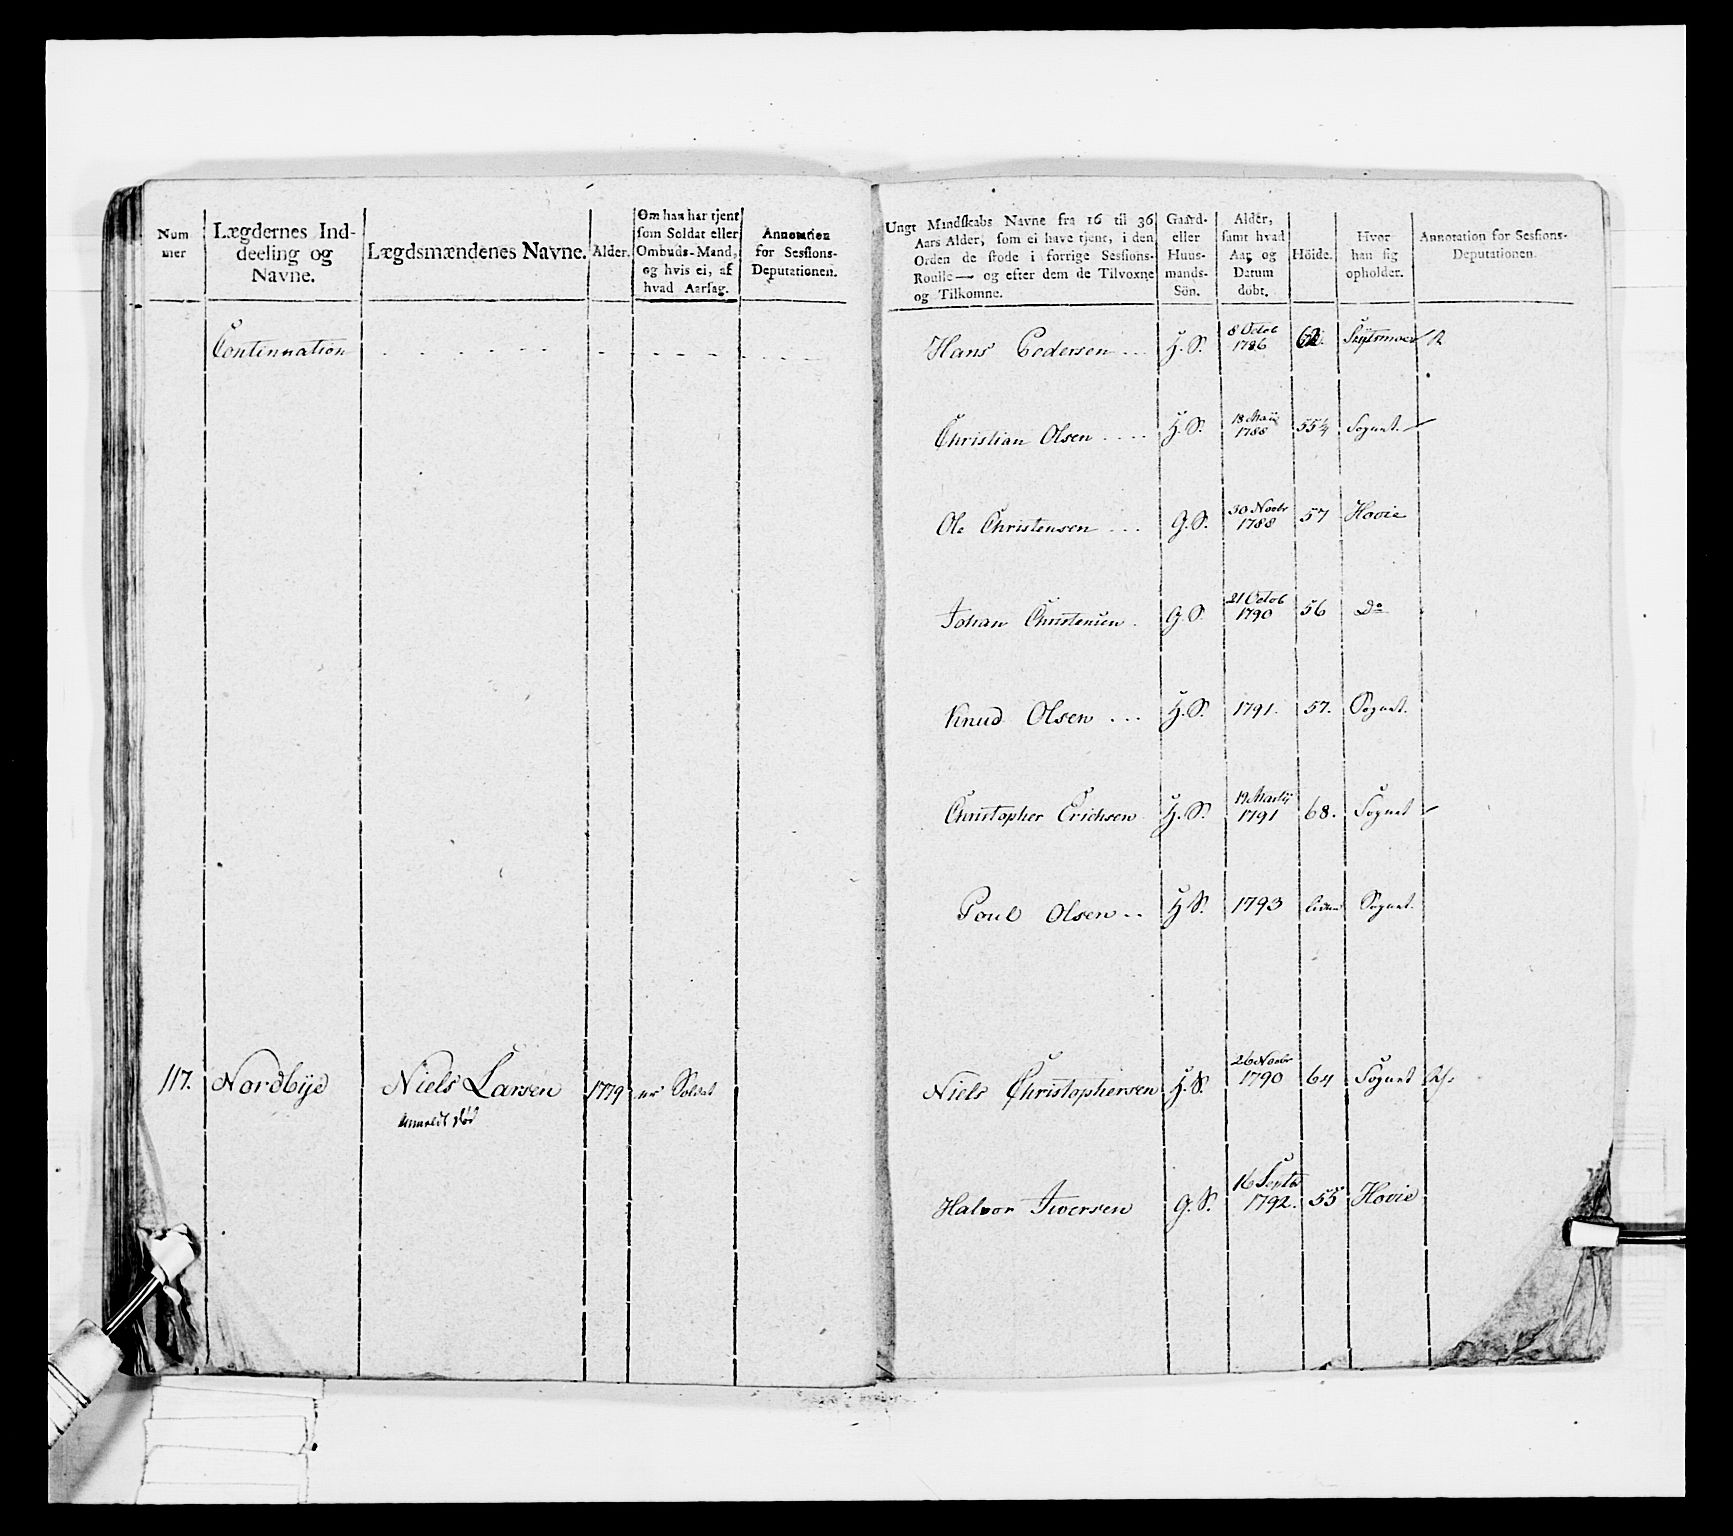 Num
mer
Lægdernes Ind-
deeling og
Navne.
Lægdsmændenes Navne.
Alder.
Om han har tjent
som Soldat eller
Ombuds-Mand,
og hvis ei, af
hvad Aarsag.
Annotation
for Sessions-
Deputationen.
Ungt Mandskabs Navne fra 16 til 36
Aars Alder, som ei have tjent, i den
Orden de stode i forrige Sessions-
Roulle — og efter dem de Tilvoxne
og Tilkomne.
Gaard-
eller
Huus-
mands-
Sön.
Alder,
samt hvad
Aar og
Datum
dobt.
Höide.
Hvor
han sig
opholder.
Annotation for Sessions-
Deputationen.
Continuation
Hans Pedersen ... H. S. 8 Octob 1786 62.
Christian Olsen .... H. S. 18 Maii 1788 55¼ Sognet.
Ole Christensen ... G. S. 30 Novbr 1788 57 Hovie
Johan Christensen . G. S. 21 Octob 1790 56 Do
Knud Olsen ... H. S. 1791. 57. Sognet.
Christopher Erichsen H. S. 19 Martij 1791 68. Sognet
Poul Olsen .. H. S. 1793 liden Sognet.
117. Nordbye Niels Larsen 1779 er Soldat
Anmeldt død
Niels Christophersen H. S. 26 Novbr 1790 64 Sognet
Halvor Iversen G. S. 16 Septbr 1792. 55 Hovie